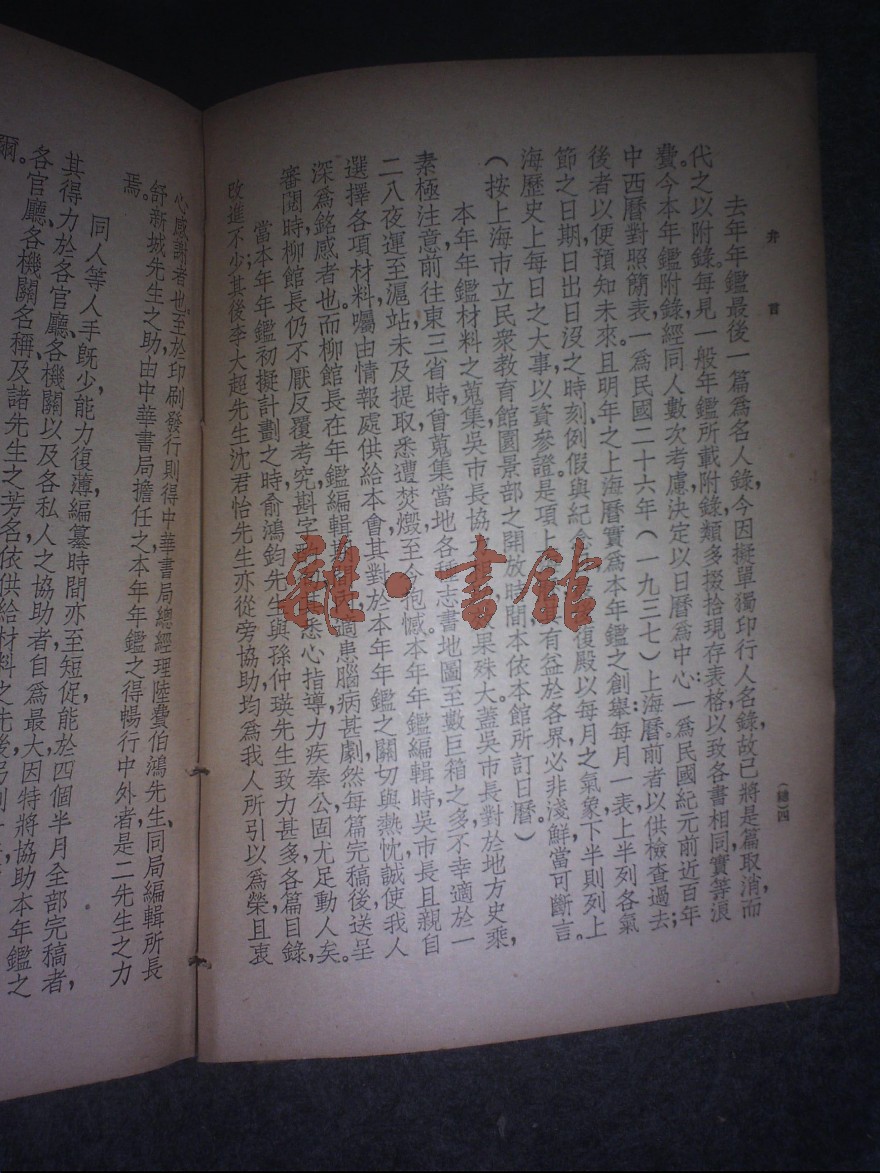 弁言
(總)四
去年年鑑最後一篇爲名人錄,今因擬單獨印行人名錄,故已將是篇取消,而
代之以附錄。每見一般年鑑所載附錄,類多掇拾現存表格,以致各書相同,實等浪
費。今本年鑑附錄,經同人數次考慮,決定以日曆爲中心:一爲民國紀元前近百年
中西曆對照簡表,一爲民國二十六年(一九三七)上海曆。前者以供檢查過去;
後者以便預知未來。且明年之上海曆,實爲本年鑑之創舉:每月一表,上半列各氣
節之日期,日出日沒之時刻,例假與紀念 復殿以每月之氣象;下半則列上
海歷史上每日之大事,以資參證。是項上 有益於各界,必非淺鮮,當可斷言。
(按上海市立民衆教育館園景部之開放時間,本依本館所訂日曆)
本年年鑑材料之蒐集,吳市長協 果殊大。蓋吳市長對於地方史乘,
素極注意,前往東三省時,曾蒐集當地各種志書地圖至數巨箱之多,不幸適於一
二八夜運至滬站,未及提取,悉遭焚燬,至今抱憾。本年年鑑編輯時,吳市長且親自
選擇各項材料,囑由情報處供給本會,其對於本年年鑑之關切與熱忱,誠使我人
深爲銘感者也。而柳館長在年鑑編輯 適患腦病甚劇,然每篇完稿後,送呈
審閱時,柳館長仍不厭反覆考究,斟字 悉心指導,力疾奉公,固尤足動人矣。
當本年年鑑初擬計劃之時,俞鴻鈞先生與孫仲瑛先生致力甚多,各篇目錄,
改進不少;其後李大超先生沈君怡先生亦從旁協助,均爲我人所引以爲榮,且衷
心感謝者也。至於印刷發行,則得中華書局總經理陸費伯鴻先生、同局編輯所長
舒新城先生之助,由中華書局擔任之,本年年鑑之得暢行中外者,是二先生之力
焉。
同人等人手旣少,能力復薄,編纂時間,亦至短促,能於四個半月全部完稿者,
其得力於各官廳、各機關以及各私人之協助者,自爲最大。因特將協助本年鑑之
各官廳、各機關名稱及諸先生之芳名,依供給材料之先後,
爾。
雜·書館